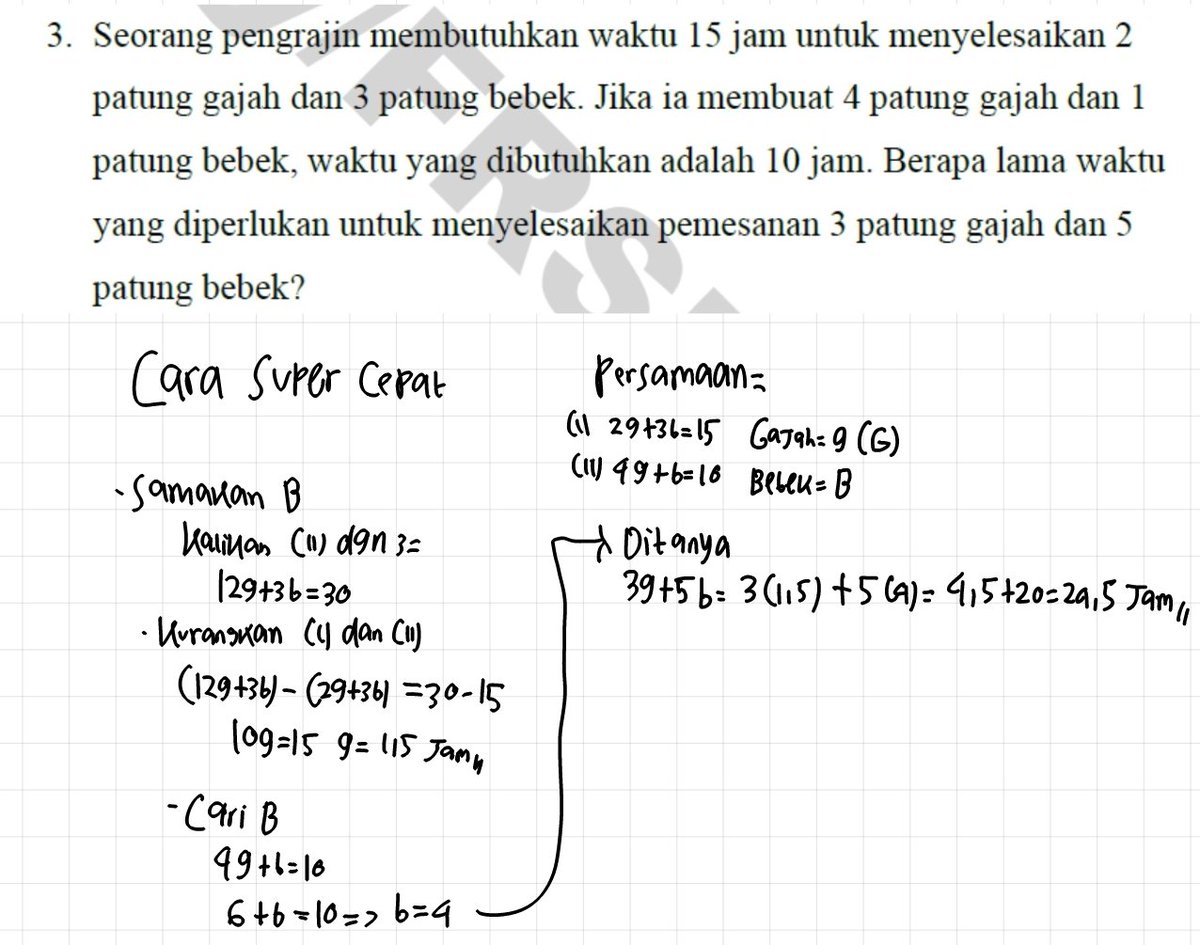 3. Seorang pengrajin membutuhkan waktu 15 jam untuk menyelesaikan 2
patung gajah dan 3 patung bebek. Jika ia membuat 4 patung gajah dan 1
patung bebek, waktu yang dibutuhkan adalah 10 jam. Berapa lama waktu
yang diperlukan untuk menyelesaikan pemesanan 3 patung gajah dan 5
patung bebek?
Cara Super Cepat
· Samakan B
Kalikan (II) dgn 3=
12g+3b=30
· Kurangkan (I) dan (II)
(12g+3b) - (2g+3b) = 30-15
10g=15 g= 1,5 Jam//
- Cari B
4g+b=10
6+b=10=> b=4
Persamaan=
(I) 2g+3b=15 Gajah= g (G)
(II) 4g+b=10 Bebek= B
→ Ditanya
3g+5b= 3(1,5) + 5(4)= 4,5+20=24,5 Jam//